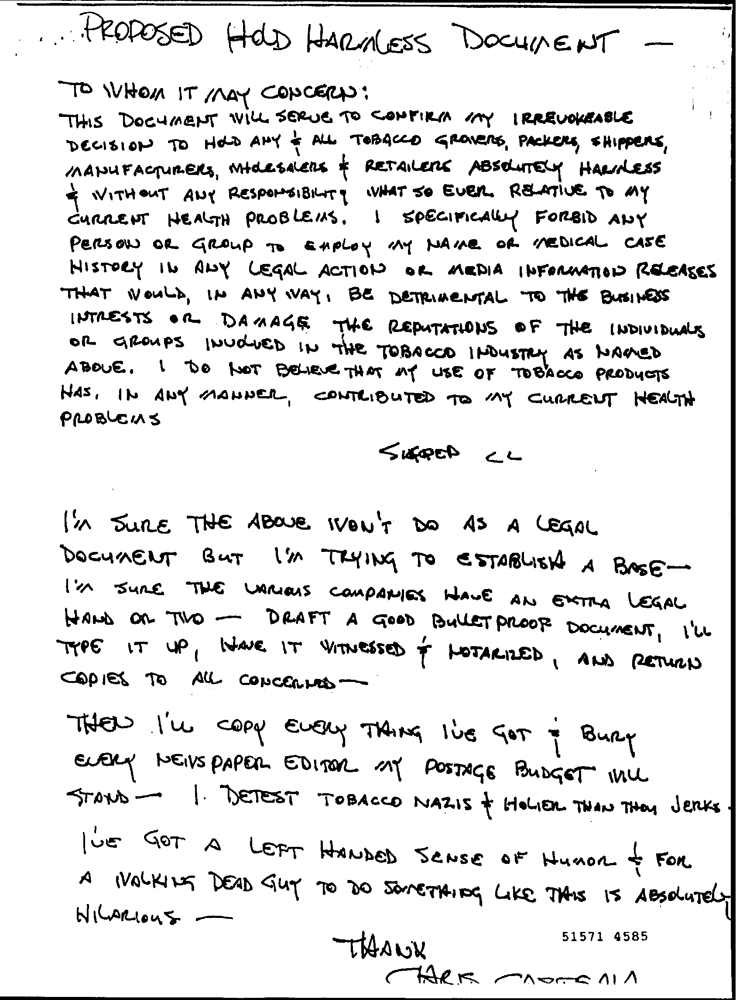 PROPOSED HOLD HARMLESS DOCUMENT —
TO WHOM IT MAY CONCERN:
THIS DOCUMENT WILL SERVE TO CONFIRM MY IRREVOKEABLE
DECISION TO HOLD ANY & ALL TOBACCO GROWERS, PACKERS, SHIPPERS,
MANUFACTURERS, WHOLESALERS & RETAILERS ABSOLUTELY HARMLESS
& WITHOUT ANY RESPONSIBILITY WHAT SO EVER RELATIVE TO MY
CURRENT HEALTH PROBLEMS. I SPECIFICALLY FORBID ANY
PERSON OR GROUP TO EMPLOY MY NAME OR MEDICAL CASE
HISTORY IN ANY LEGAL ACTION OR MEDIA INFORMATION RELEASES
THAT WOULD, IN ANY WAY, BE DETRIMENTAL TO THE BUSINESS
INTRESTS OR DAMAGE THE REPUTATIONS OF THE INDIVIDUALS
OR GROUPS INVOLVED IN THE TOBACCO INDUSTRY AS NAMED
ABOVE. I DO NOT BELIEVE THAT MY USE OF TOBACCO PRODUCTS
HAS, IN ANY MANNER, CONTRIBUTED TO MY CURRENT HEALTH
PROBLEMS
SIGNED CL
I'M SURE THE ABOVE WON'T DO AS A LEGAL
DOCUMENT BUT I'M TRYING TO ESTABLISH A BASE —
I'M SURE THE VARIOUS COMPANIES HAVE AN EXTRA LEGAL
HAND OR TWO — DRAFT A GOOD BULLETPROOF DOCUMENT, I'LL
TYPE IT UP, HAVE IT WITNESSED & NOTARIZED, AND RETURN
COPIES TO ALL CONCERNED —
THEN I'LL COPY EVERY THING I'VE GOT & BURY
EVERY NEWSPAPER EDITOR MY POSTAGE BUDGET WILL
STAND — I DETEST TOBACCO NAZIS & HOLIER THAN THOU JERKS.
I'VE GOT A LEFT HANDED SENSE OF HUMOR & FOR
A WALKING DEAD GUY TO DO SOMETHING LIKE THIS IS ABSOLUTELY
HILARIOUS —
THANK
51571 4585